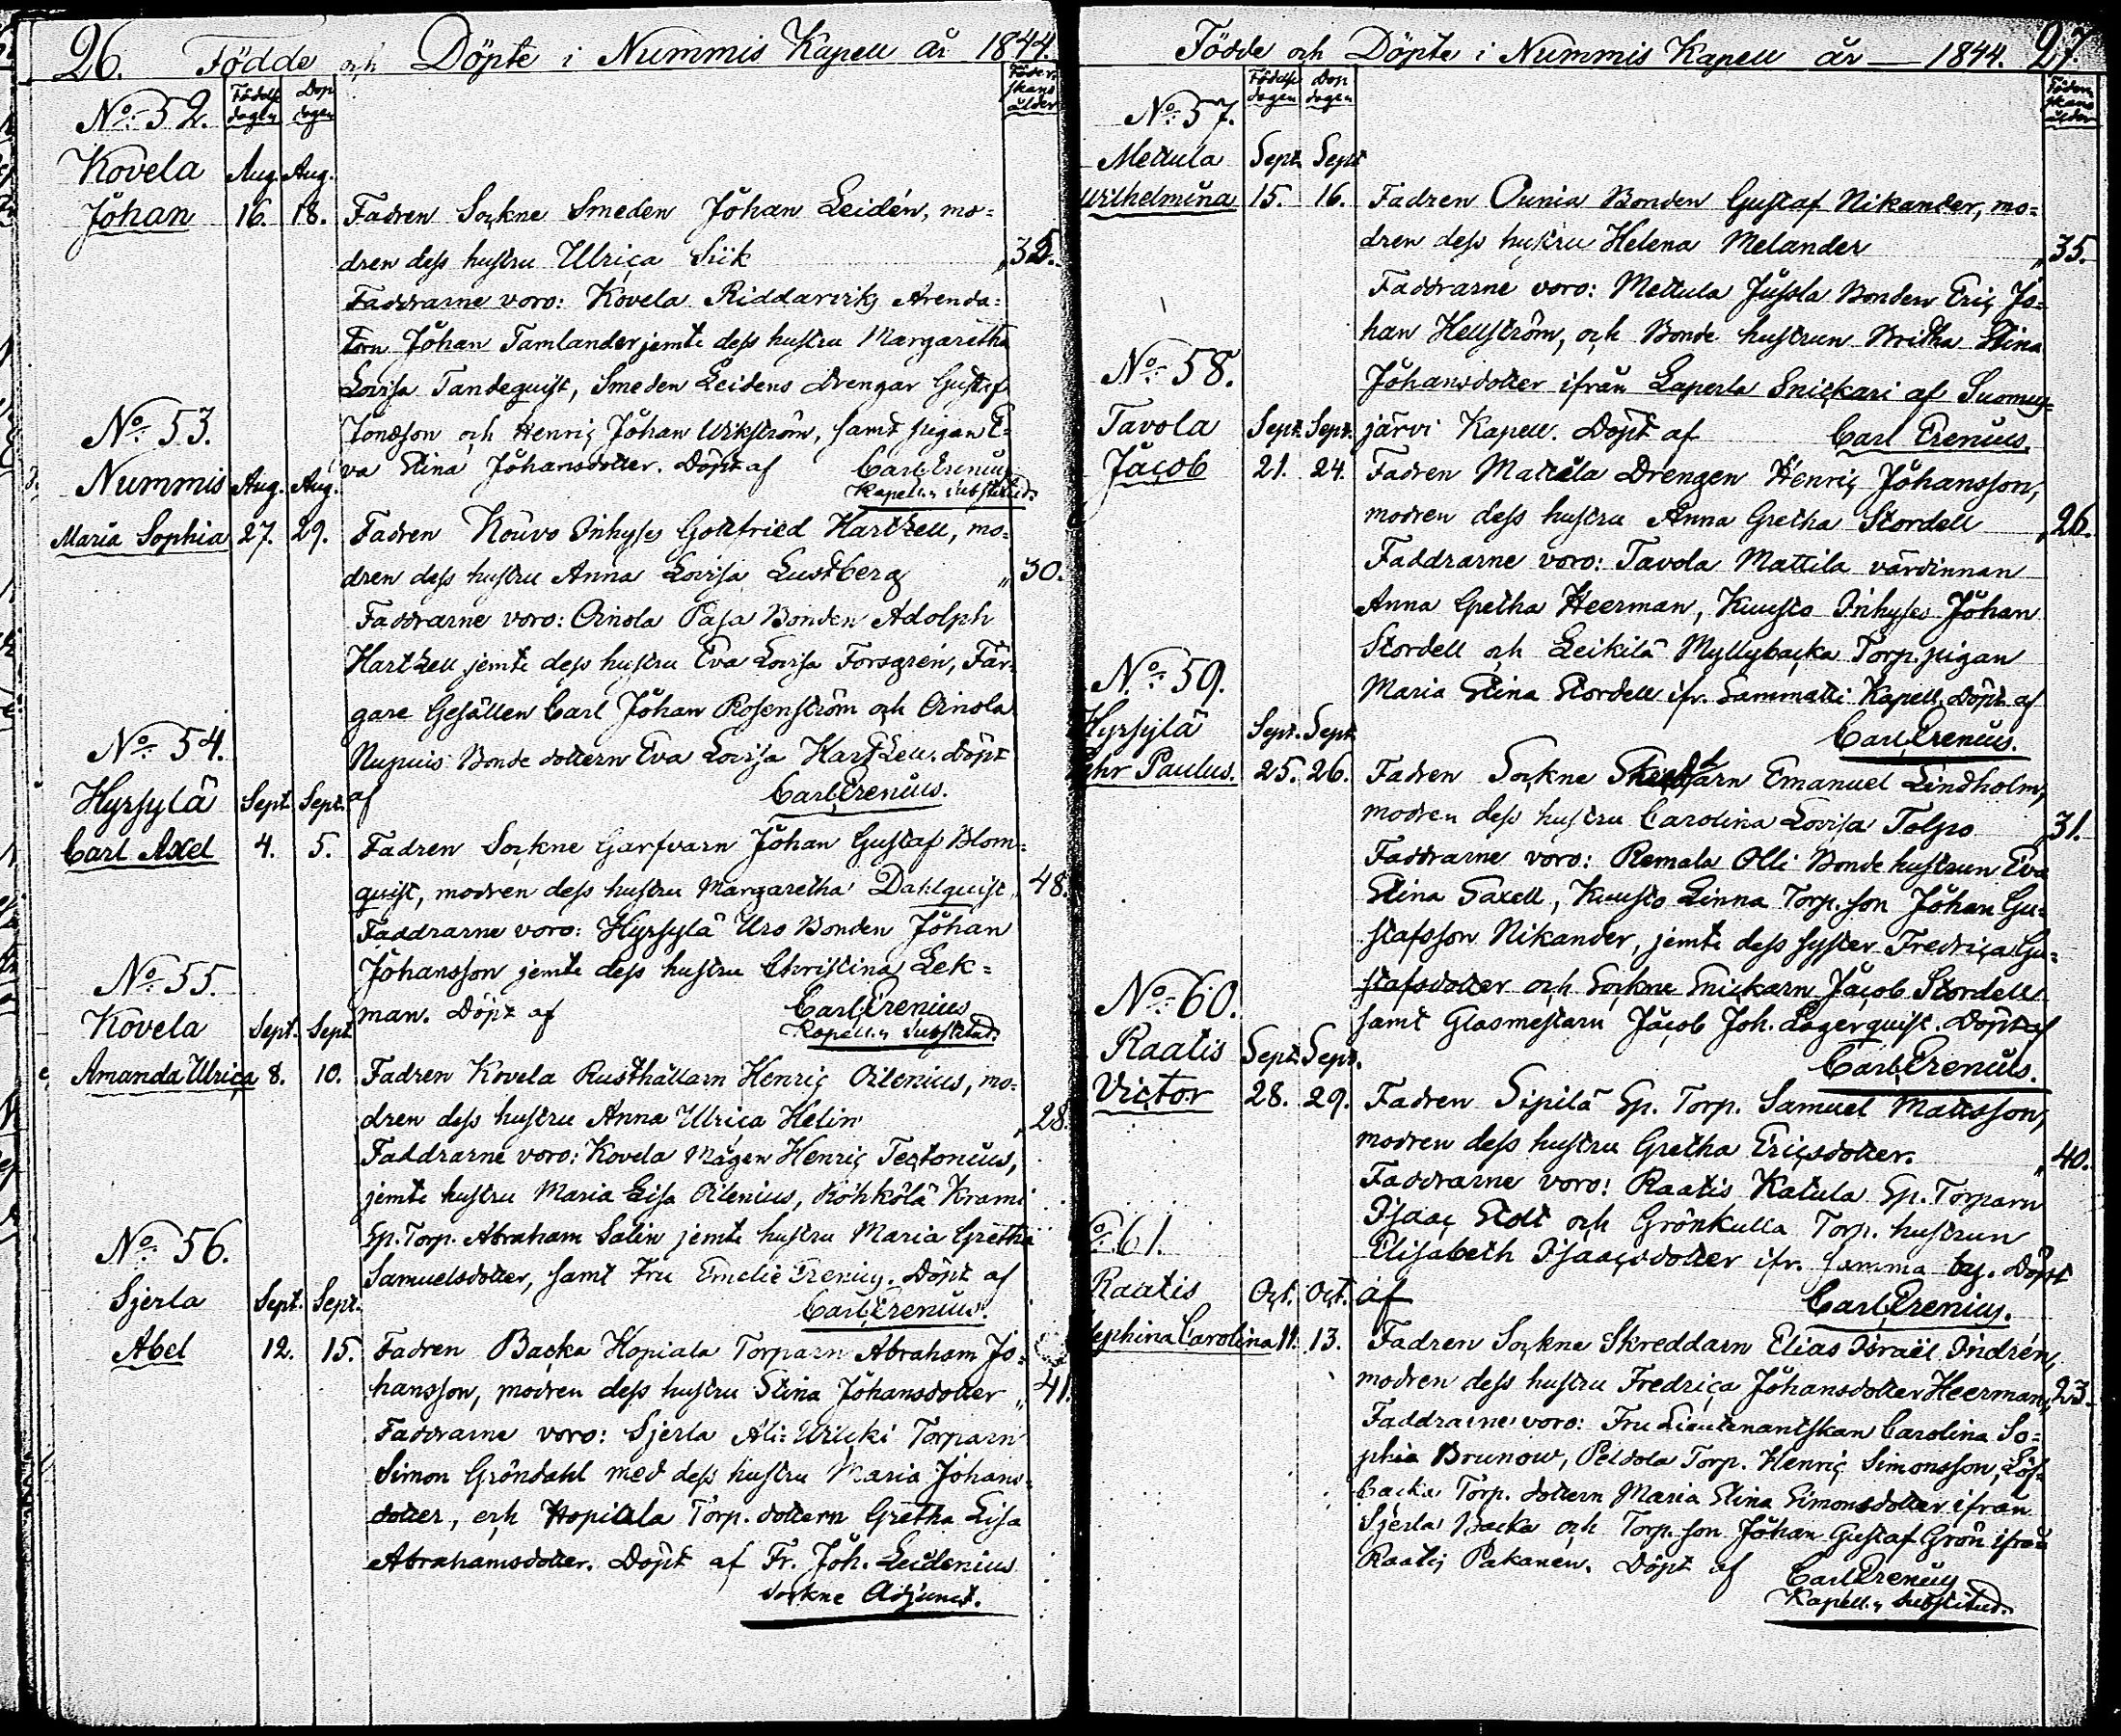 26. Födde och Döpte i Nummis Kapell år 1844.
Födelse dagen
Dop dagen
Föderskans ålder
No. 52.
Kovela Aug. Aug.
Johan 16. 18. Fadren Sockne Smeden Johan Leidén, mo=
dren dess hustru Ulrica Siik „ 35.
Faddrarne voro: Kovela Riddarviks Arenda=
torn Johan Tamlander jemte dess hustru Margaretha
Lovisa Tandequist, Smeden Leidens Drengar Gustaf
Jonasson och Henric Johan Wikström, samt pigan E=
va Stina Johansdotter. Döpt af Carl Erenius
Kapell.s Substitud.
No. 53.
Nummis Aug. Aug.
Maria Sophia 27. 29. Fadren Nouvo Inhyses Gottfried Hartzell, mo=
dren dess hustru Anna Lovisa Lustberg „ 30.
Faddrarne voro: Oinola Pasa Bonden Adolph
Hartzell jemte dess hustru Eva Lovisa Forsgrén, Fär=
gare Gesällen Carl Johan Rosenström och Oinola
Nupuis Bonde dottern Eva Lovisa Hartzell. Döpt
af Carl Erenius.
No. 54.
Hyrsylä Sept. Sept.
Carl Axel 4. 5. Fadren Sockne Garfvarn Johan Gustaf Blom=
quist, modren dess hustru Margaretha Dahlquist „ 48.
Faddrarne voro: Hyrsylä Uro Bonden Johan
Johansson jemte dess hustru Christina Lek=
man. Döpt af Carl Erenius
Kapell.s Substitud.
No. 55.
Kovela Sept. Sept.
Amanda Ulrica 8. 10. Fadren Kovela Rusthållarn Henric Oilenius, mo=
dren dess hustru Anna Ulrica Helin „ 28.
Faddrarne voro: Kovela Mågen Henric Tectonius,
jemte hustru Maria Lisa Oilenius, Röhkölä Krami
Sp. Torp. Abraham Salin jemte hustru Maria Gretha
Samuelsdotter, samt Fru Emelie Erenius. Döpt af
Carl Erenius.
No. 56.
Sjerla Sept. Sept.
Abel 12. 15. Fadren Backa Hopiala Torparn Abraham Jo=
hansson, modren dess hustru Stina Johansdotter „ 41.
Faddrarne voro: Sjerla Ali= Torparn
Simon Gröndahl med dess hustru Maria Johans=
dotter, och Hopiala Torp. dottern Gretha Lisa
Abrahamsdotter. Döpt af Fr. Joh. Leidenius
Sockne Adjunct.
Födde och Döpte i Nummis Kapell år — 1844. 27.
Födelse dagen
Dop dagen
Föderskans ålder
No. 57.
Mettula Sept. Sept
Wilhelmina 15. 16. Fadren Ounia Bonden Gustaf Nikander, mo=
dren dess hustru Helena Melander „ 35.
Faddrarne voro: Mettula Jussla Bonden Eric Jo=
han Hellström, och Bonde hustrun Britha Stina
Johansdotter ifrån Laperla Snickari af Suomus=
järvi Kapell. Döpt af Carl Erenius.
No. 58.
Tavola Sept. Sept.
Jacob 21. 24. Fadren Mattila Drengen Henric Johansson,
modren dess hustru Anna Gretha Stordell „ 26.
Faddrarne voro: Tavola Mattila värdinnan
Anna Gretha Heerman, Kuusto Inhyses Johan
Stordell och Leikilä Myllybacka Torp. pigan
Maria Stina Stordell ifr. Sammatti Kapell. Döpt af
Carl Erenius.
No. 59.
Hyrsylä Sept. Sept
Ehr Paulus. 25. 26. Fadren Sockne Emanuel Lindholm,
modren dess hustru Carolina Lovisa Tolpo „ 31.
Faddrarne voro: Remala Olli Bonde hustrun Eva
Stina Saxell, Kuusto Linna Torp. son Johan Gu=
stafsson Nikander, jemte dess syster Fredrica Gu=
stafsdotter och Sockne Snickarn Jacob Stordell
samt Glasmestarn Jacob Joh. Lagerquist. Döpt af
Carl Erenius.
No. 60.
Raatis Sept. Sept.
Victor 28. 29. Fadren Sipilä Sp. Torp. Samuel Mattsson,
modren dess hustru Gretha Ericsdotter. „ 40.
Faddrarne voro: Raatis Katula Sp. Torparn
Isaac Stolt och Grönkulla Torp. hustrun
Elisabeth Isaacsdotter ifr. samma by. Döpt
af Carl Erenius.
No. 61.
Raatis Oct. Oct.
Josephina Carolina 11. 13. Fadren Sockne Skreddarn Elias Israël Indrén,
modren dess hustru Fredrica Johansdotter Heerman, „ 23.
Faddrarne voro: Fru Lieutenantskan Carolina So=
phia Brunow, Peldola Torp. Henric Simonsson, Löf=
backa Torp. dottern Maria Stina Simonsdotter ifrån
Sjerla Backa och Torp. son Johan Gustaf Grön ifrån
Raatis Pakanen. Döpt af Carl Erenius
Kapell.s Substitud.